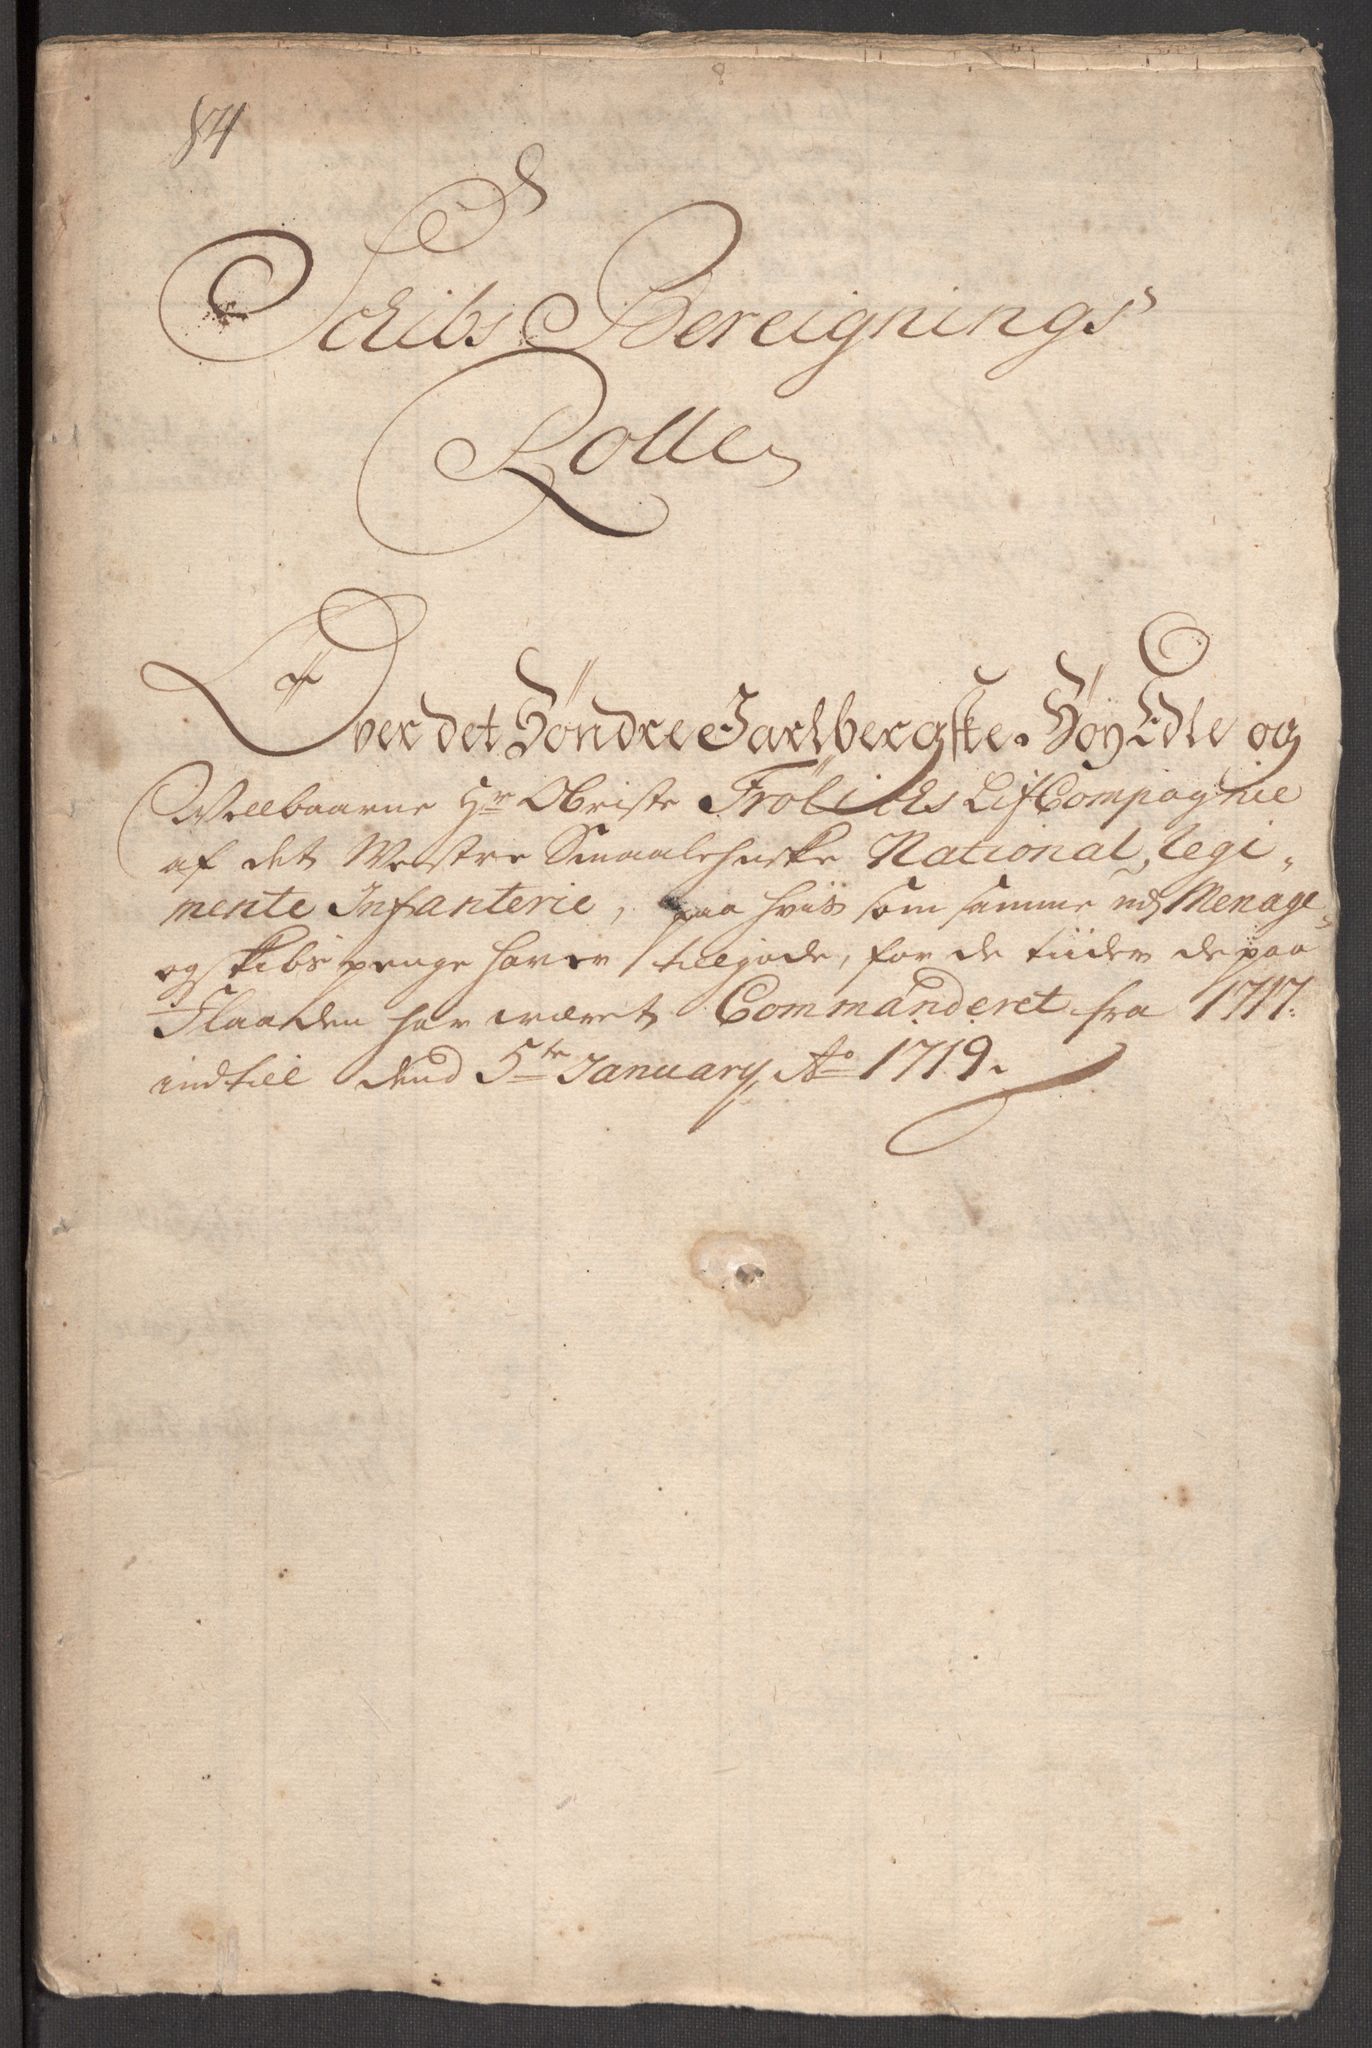 84
Schibs Bereignings
Rolle
Over det Söndre Jarlbergske Höy Edle og
Wellbaarne Hr Obriste Frölichs Lif Compagnie
af det Westre Smaalehnske National Regi-
mente Infanterie, paa hvis som samme udj Menage
og skibs penge haver tillgode, for de tiider de paa
Flaaden har wæret Commanderet fra 1717:
indtill dend 5te January Ao 1719.